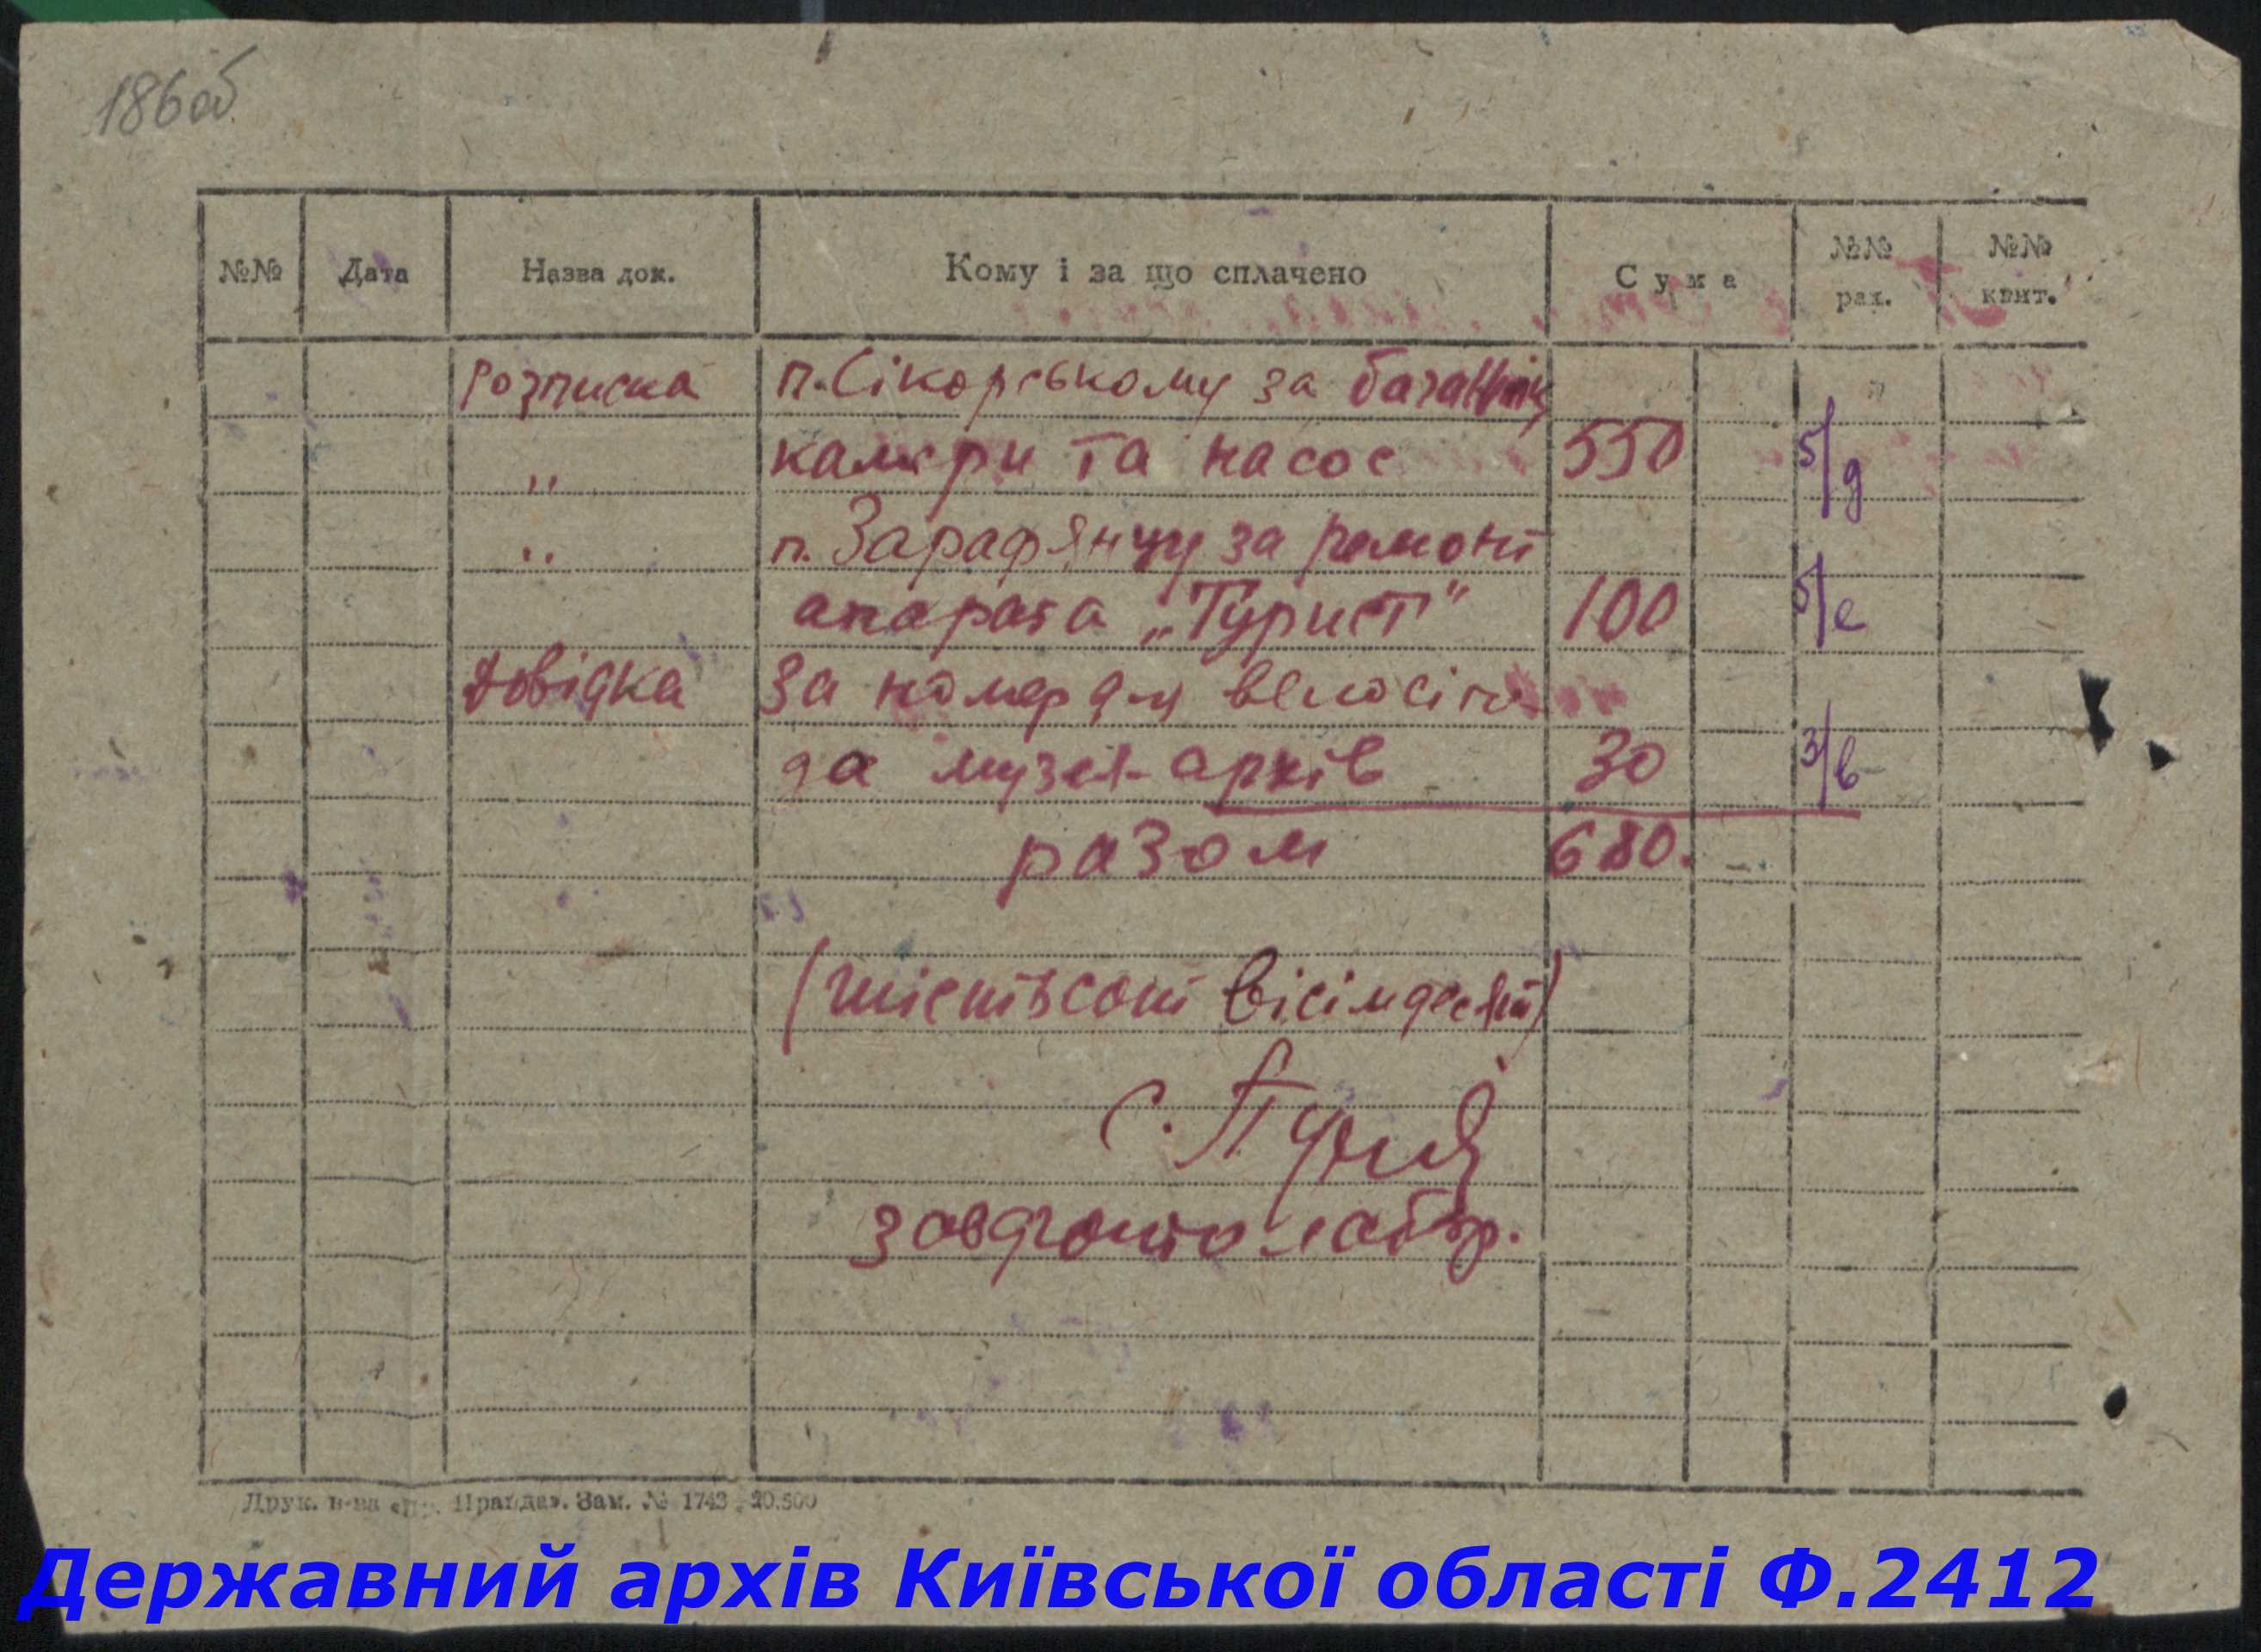 186об
№№ Дата Назва док. Кому і за що сплачено Сума №№ рах. №№ квит.
Розписка п. Сікорському за багажник
" камери та насос 550 5/д
" п. Зарафянцу за ремонт
апарата „Турист" 100 5/е
Довідка За номер для велосіпе-
да музея-архів 30 3/в
разом 680.
(шістьсот вісімдесят)
С.
зав фото лабор.
Друк. Правда». Зам. № 1743 20.500
Державний архів Київської області Ф.2412